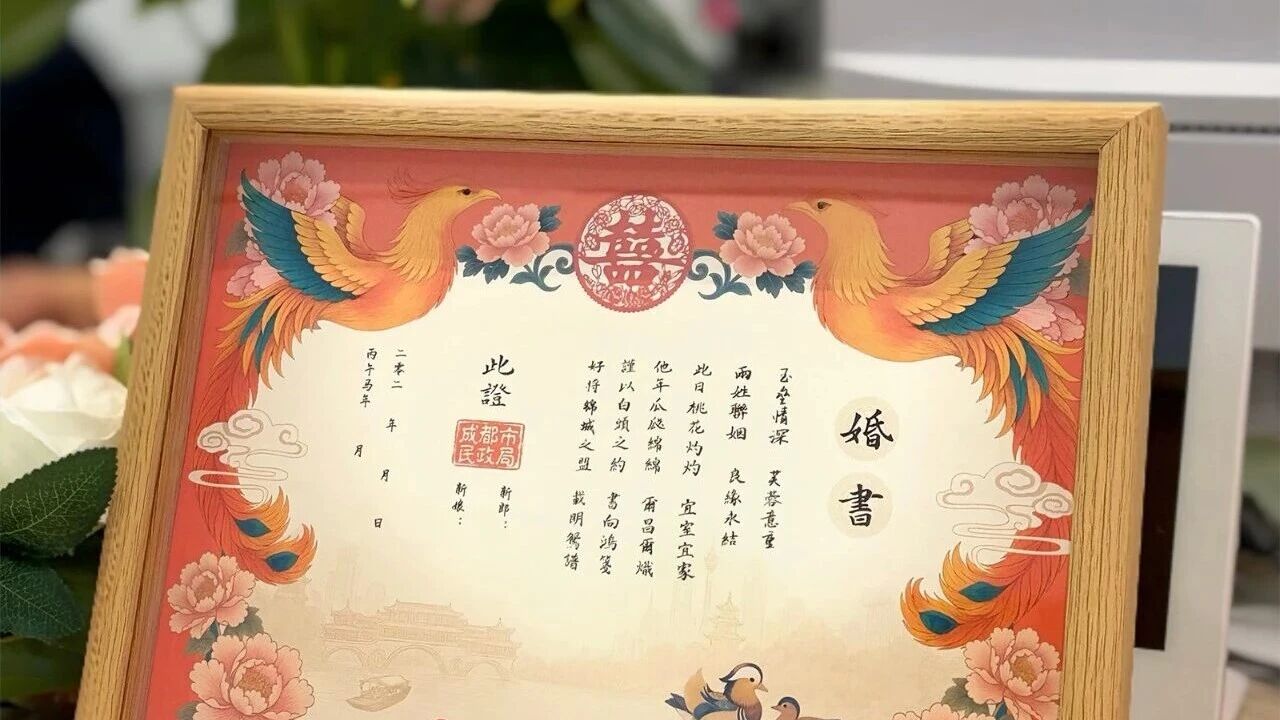 婚書
玉壘情深 芙蓉意重
兩姓聯姻 良緣永結
此日桃花灼灼 宜室宜家
他年瓜瓞綿綿 爾昌爾熾
謹以白頭之約 書向鴻箋
好将錦城之盟 載明鴛譜
此證
成都市
民政局
新郎：
新娘：
二零二 年 月 日
丙午马年 月